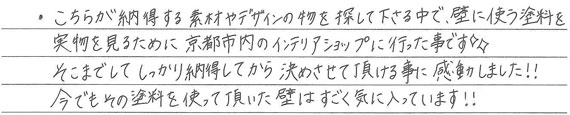 ・こちらが納得する素材やデザインの物を探して下さる中で、壁に使う塗料を
実物を見るために京都市内のインテリアショップに行った事です✧✧
そこまでしてしっかり納得してから決めさせて頂ける事に感動しました!!
今でもその塗料を使って頂いた壁はすごく気に入っています!!